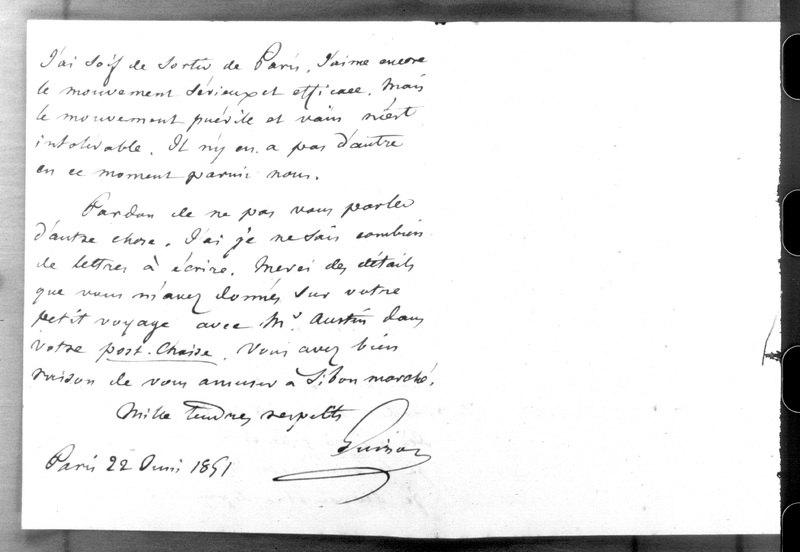 J'ai soif de sortir de Paris. J'aime encore
le mouvement sérieux et efficace. Mais
le mouvement puérile et vain m'est
intolérable. Il n'y en a pas d'autre
en ce moment parmi nous.
Pardon de ne pas vous parler
d'autre chose. J'ai je ne sais combien
de lettres à écrire. Merci des détails
que vous m'avez donnés sur votre
petit voyage avec Mr. Austin dans
votre post-chaise. Vous avez bien
raison de vous amuser à si bon marché.
Mille tendres respects
Guizot
Paris 22 Juin 1851